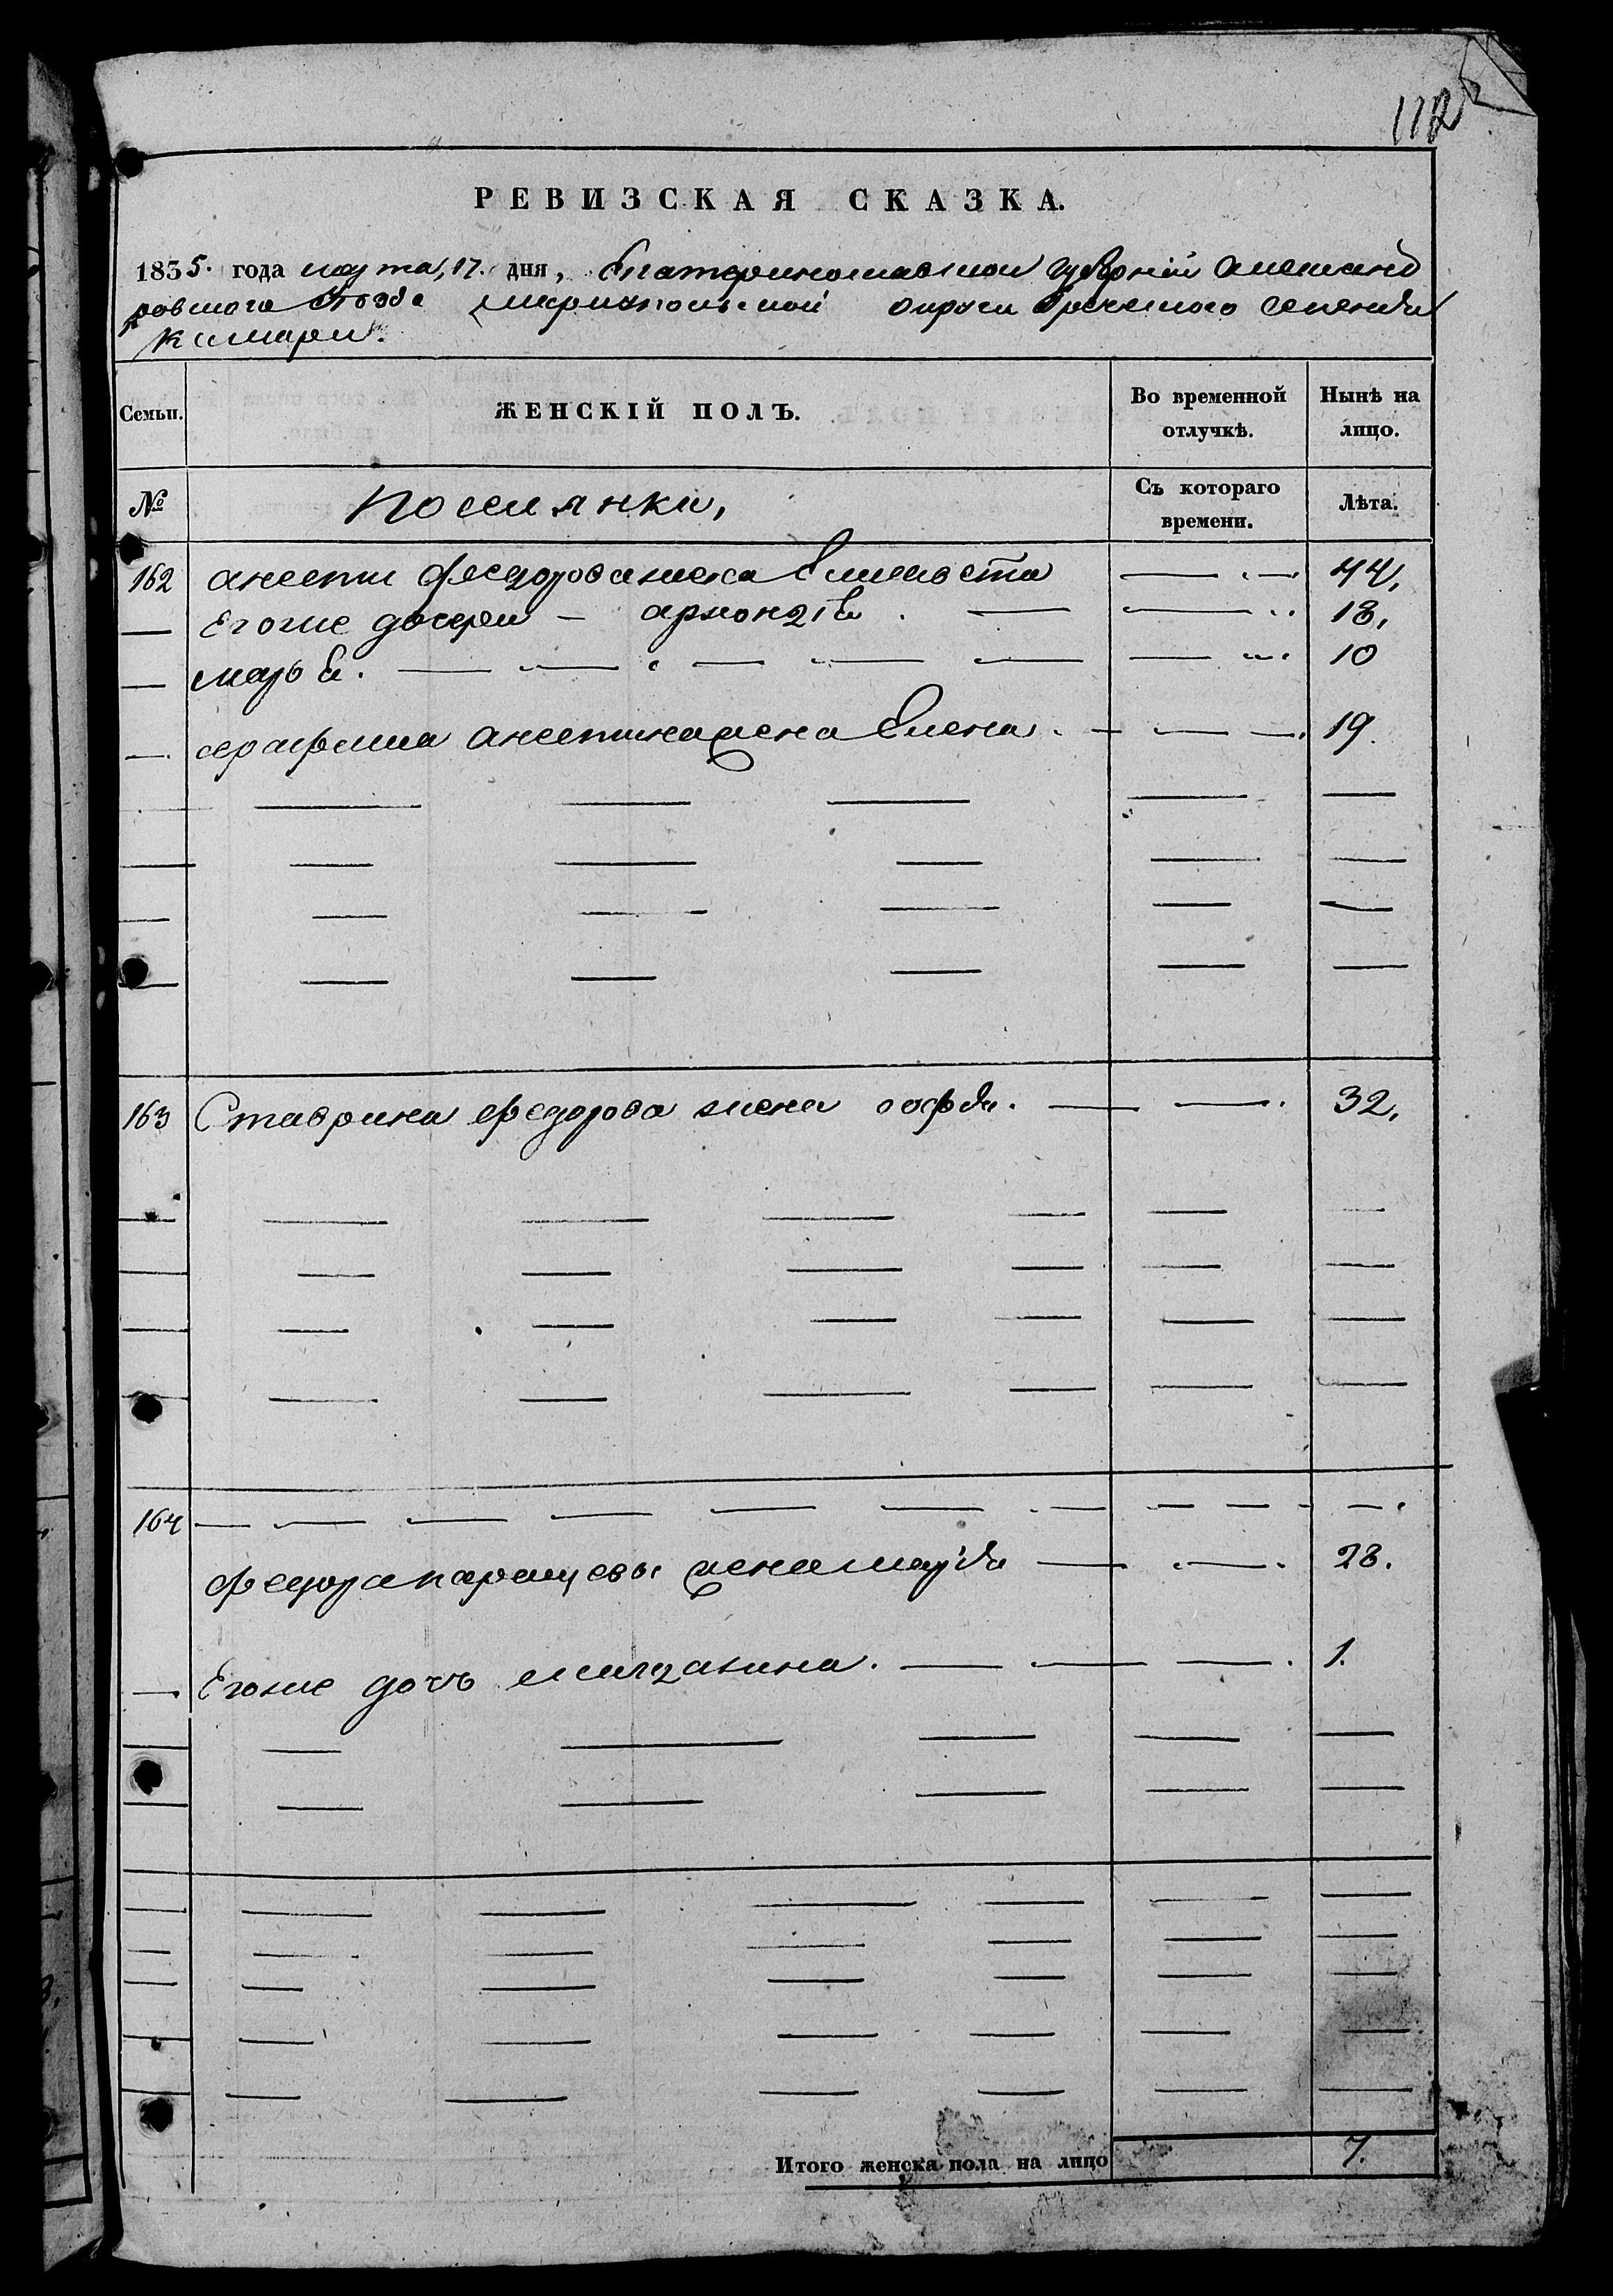 112
РЕВИЗСКАЯ СКАЗКА.
1835. года марта, 17. дня, Екатеринославской губерніи Александ
ровскаго Уѣзда Мариупольской округи Греческаго селенія
Камари.
Семьи.
ЖЕНСКІЙ ПОЛЪ.
Во временной отлучкѣ.
Нынѣ на лицо.
№
Поселянки,
Съ котораго времени.
Лѣта.
162 анести федорова жена Елисавета 44,
Егоже дочери — архонтія 18,
марья. 10
серафима анестина жена Елена. 19.
163 Ставрина федорова жена софья. 32,
164
федора жена марія 28.
Егоже дочь 1.
Итого женска пола на лицо 7.